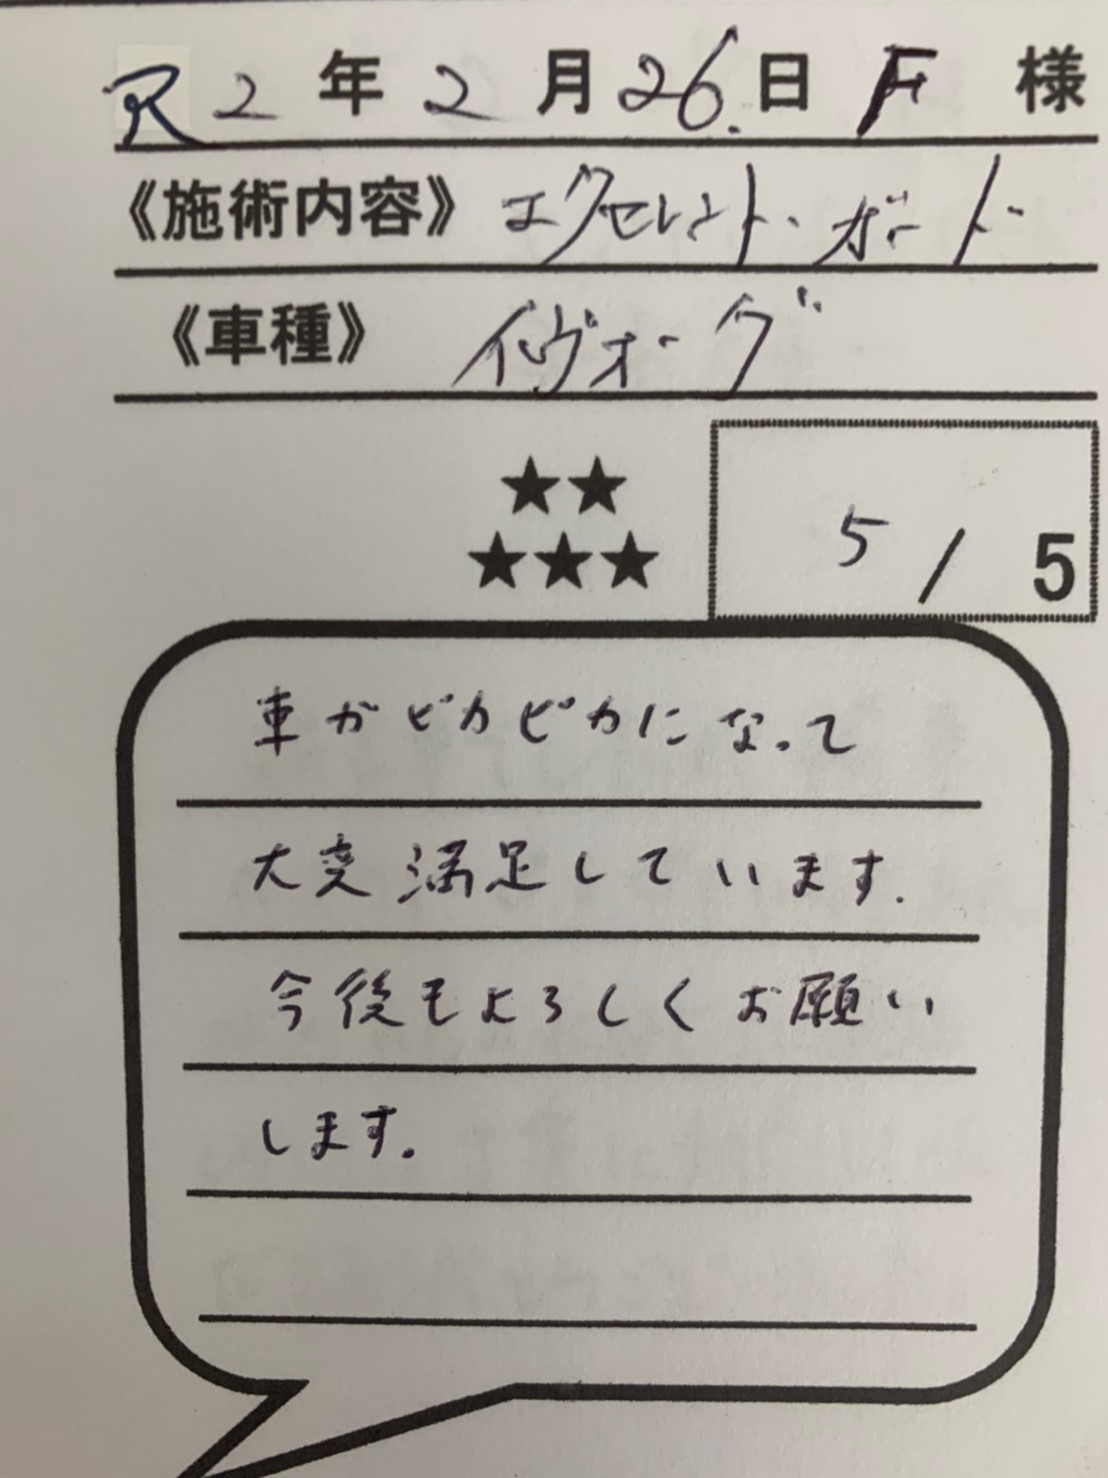 R2年2月26日 F 様
《施術内容》 エクセレント・ガード
《車種》 イヴォーグ
★★
★★★
5/5
車がピカピカになって
大変満足しています.
今後もよろしくお願い
します.